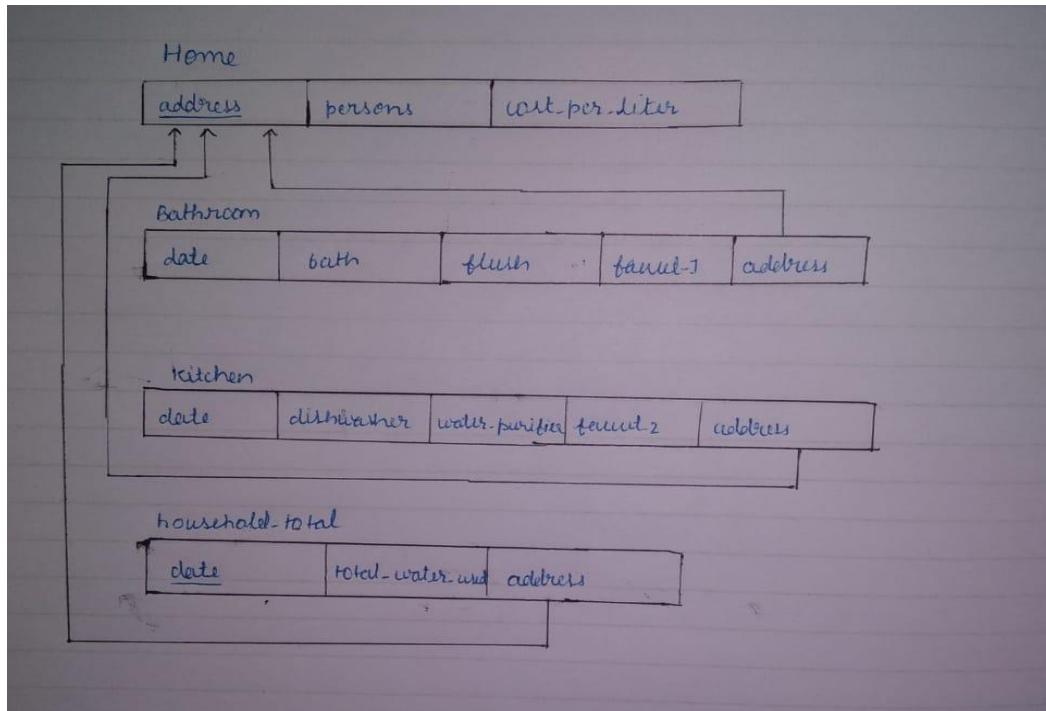 Home
address persons cost_per_liter
Bathroom
date bath flush faucet-1 address
kitchen
date dishwasher water-purifier faucet-2 address
household-total
date total-water-used address